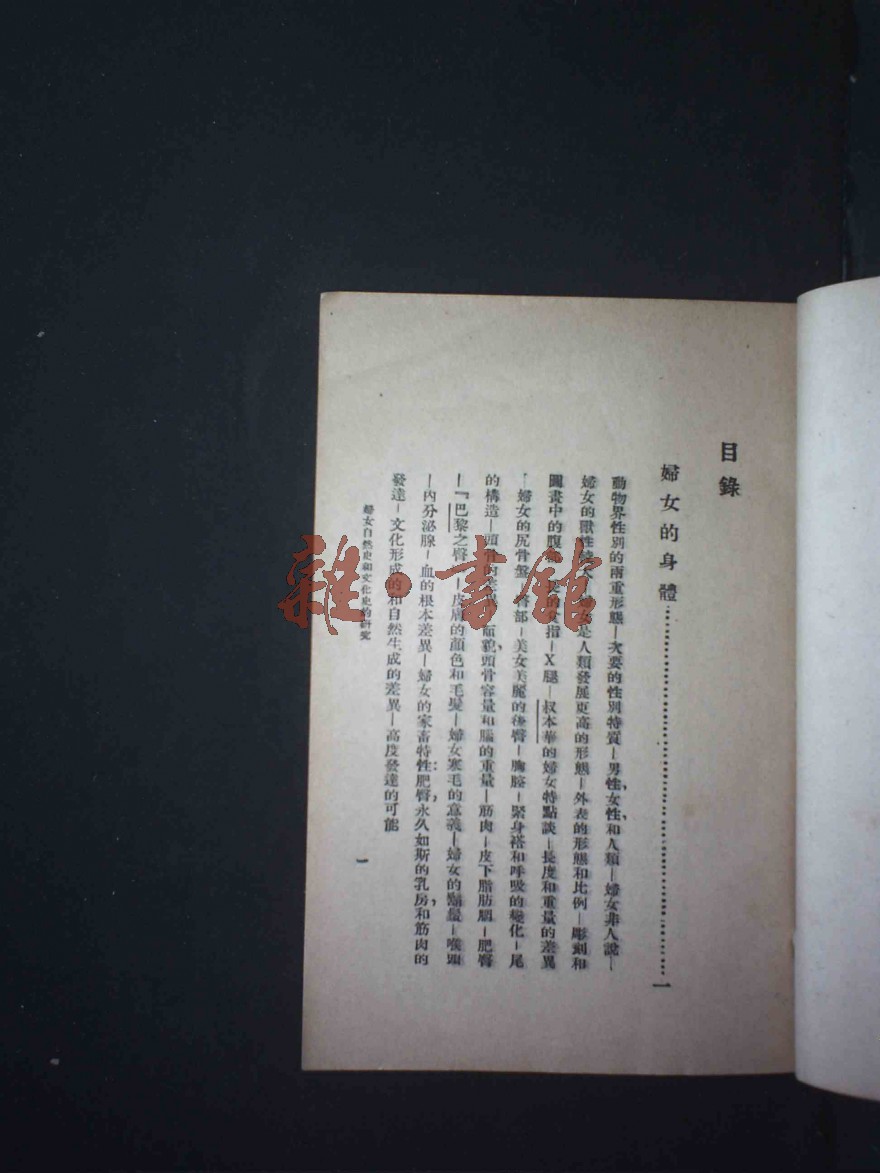 目錄
婦女的身體……………………………………一
動物界性別的兩重形態—次要的性別特質—男性、女性、和人類—婦女非人說—
婦女的獸性 婦女是人類發展更高的形態—外表的形態和比例—彫刻和
圖畫中的腹 食指—X腿—叔本華的婦女特點談—長度和重量的差異
—婦女的尻骨盤 臀部—美女美麗的後臀—胸腔—緊身褡和呼吸的變化—尾
的構造—頭骨的 面貌、頭骨容量和腦的重量—筋肉—皮下脂肪 —肥臀
—『巴黎之臀 —皮膚的顏色和毛髮—婦女寒毛的意義—婦女的鬍鬚—喉頭
—內分泌腺—血的根本差異—婦女的家畜特性:肥臀、永久如斯的乳房、和筋肉的
發達—文化形成的和自然生成的差異—高度發達的可能
婦女自然史和文化史的研究
一
雜·書館